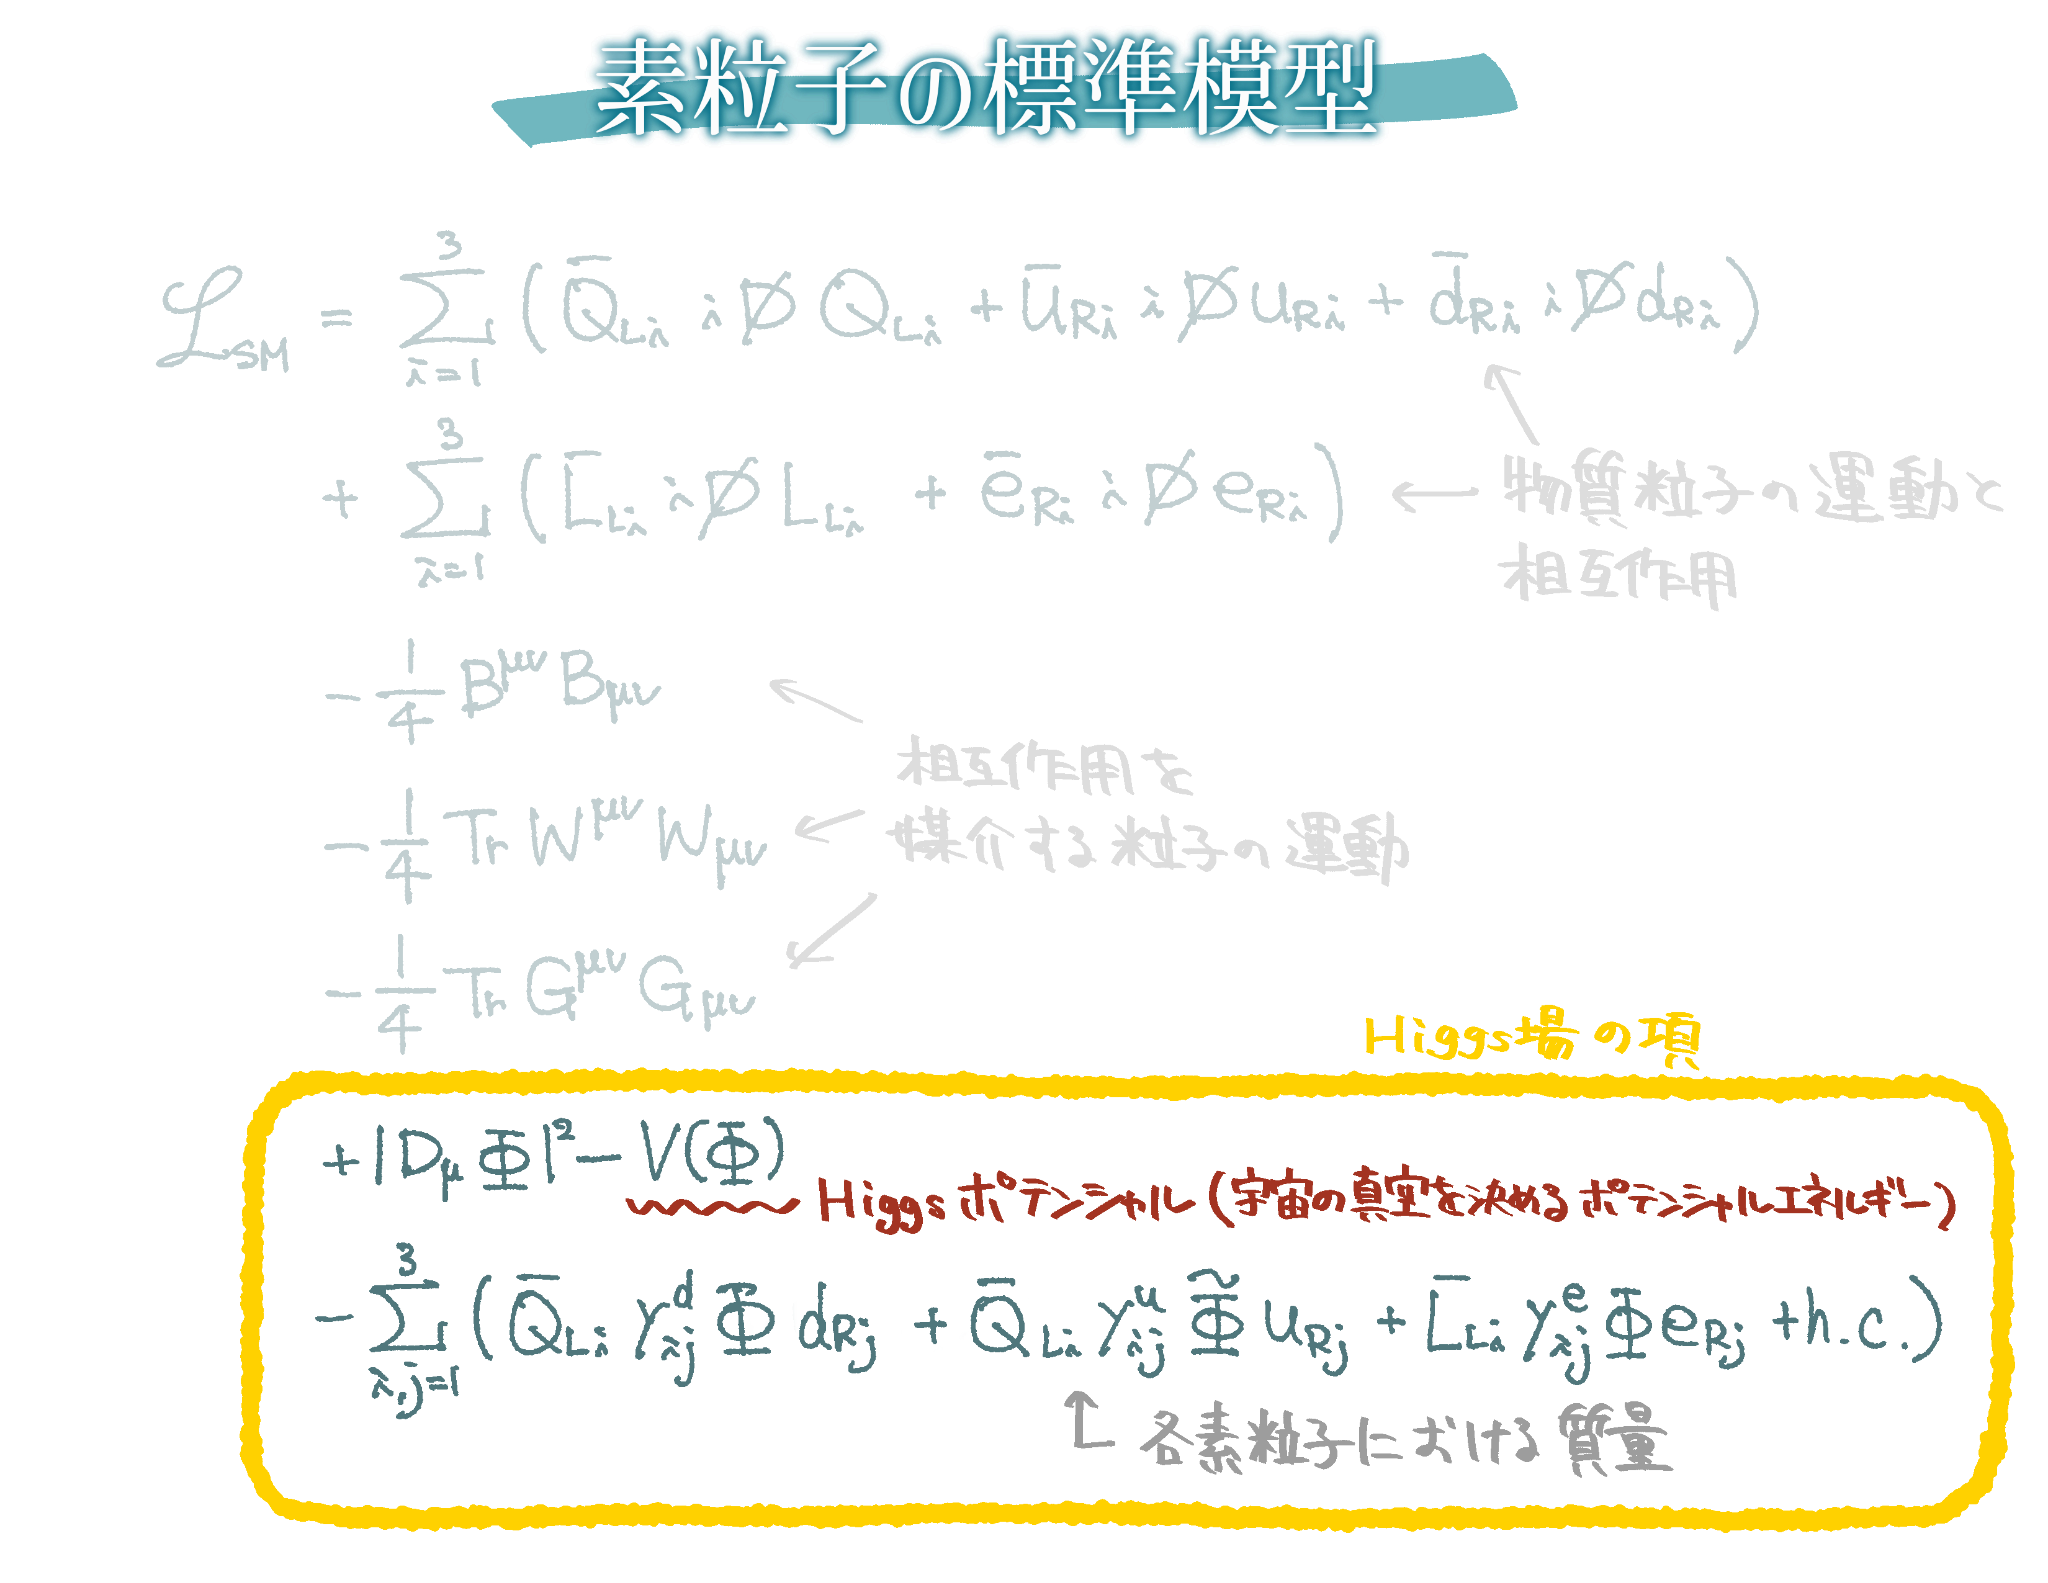 素粒子の標準模型
ℒ_SM = Σ_{i=1}^{3} ( Q̄_{Li} i D̸ Q_{Li} + ū_{Ri} i D̸ u_{Ri} + d̄_{Ri} i D̸ d_{Ri} )
+ Σ_{i=1}^{3} ( L̄_{Li} i D̸ L_{Li} + ē_{Ri} i D̸ e_{Ri} ) ← 物質粒子の運動と
相互作用
- 1/4 B^{μν} B_{μν}
相互作用を
- 1/4 Tr W^{μν} W_{μν} ← 媒介する粒子の運動
- 1/4 Tr G^{μν} G_{μν}
Higgs場の項
+ |D_μ Φ|² - V(Φ)
Higgs ポテンシャル (宇宙の真空を決めるポテンシャルエネルギー)
- Σ_{i,j=1}^{3} ( Q̄_{Li} y^d_{ij} Φ d_{Rj} + Q̄_{Li} y^u_{ij} Φ̃ u_{Rj} + L̄_{Li} y^e_{ij} Φ e_{Rj} + h.c. )
各素粒子における質量